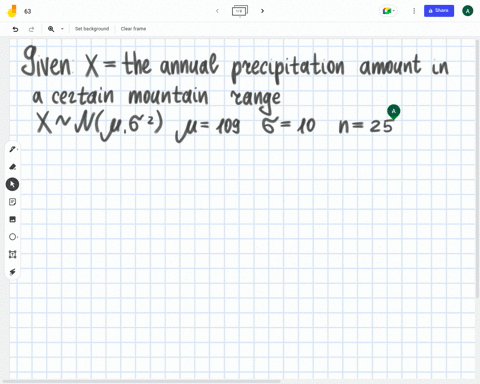 63
Share
A
Set background
Clear frame
A
Given X = the annual precipitation amount in
a certain mountain range
X ~ N(μ,σ²) μ = 109 σ = 10 n = 25